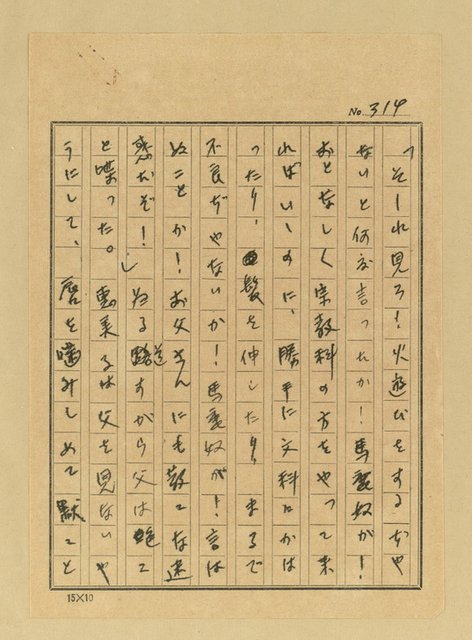 No. 314
「そーれ見ろ!火遊びをするぢや
ないと何度言つたか!馬鹿奴が!
おとなしく宗教科の方をやつて来
ればいゝのに、勝手に文科にかは
つたり、髪を伸したり、まるで
不良ぢやないか!馬鹿奴が!言は
ぬことか!お父さんにも教こな迷
惑だぞ!」
る 道すがら父は
と喋つた。恵美るは父を見ないや
うにして、唇を噛みしめて黙こと
15×10